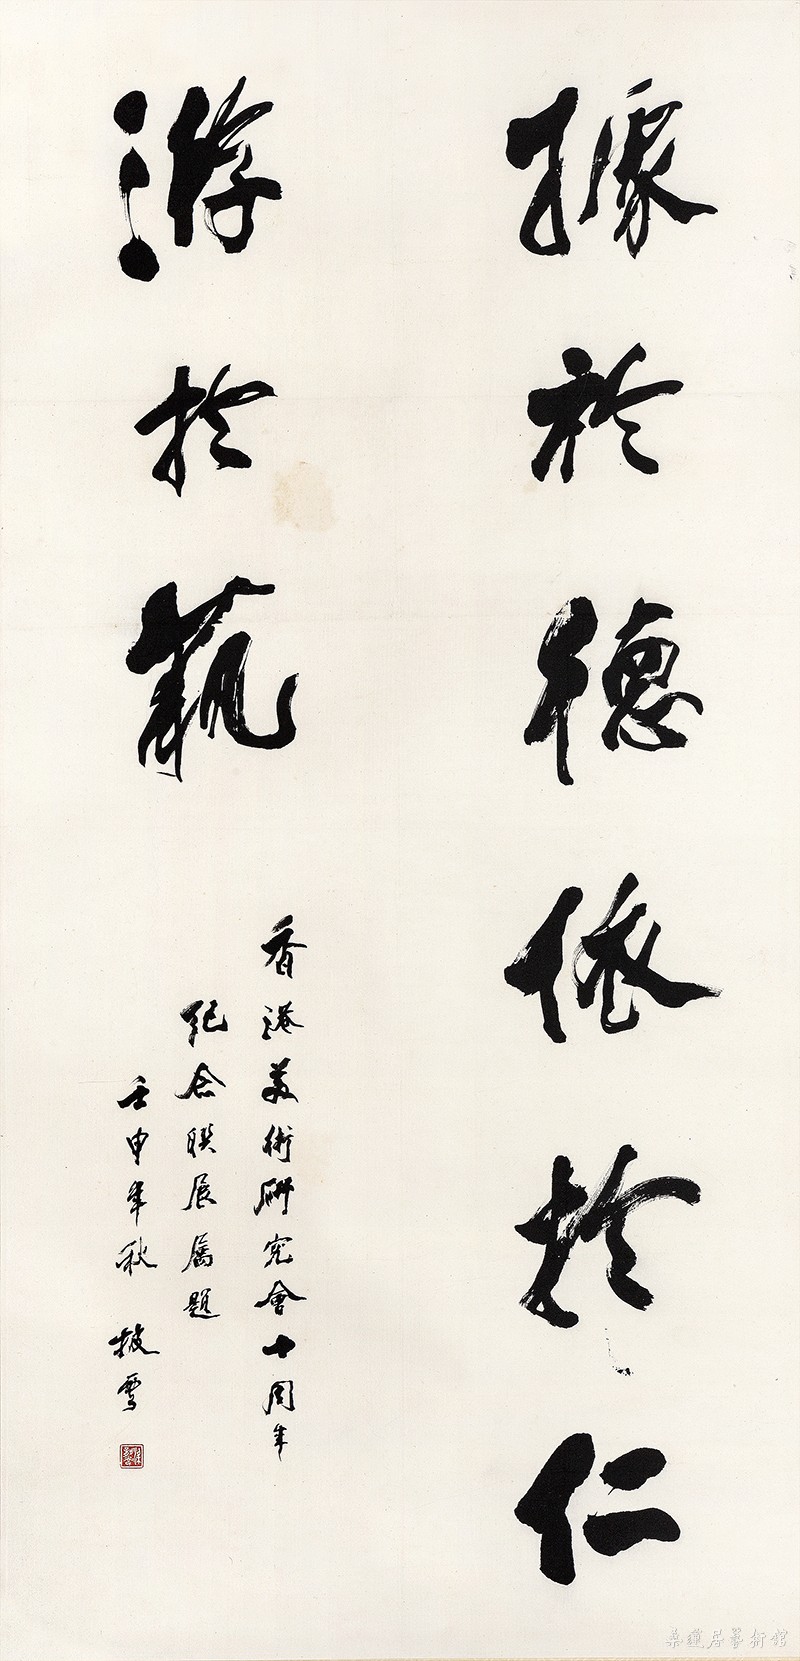 據於德依於仁
游於藝
香港美術研究會十周年
紀念联展属題
壬申年秋 披雪
葉蓮居藝術館